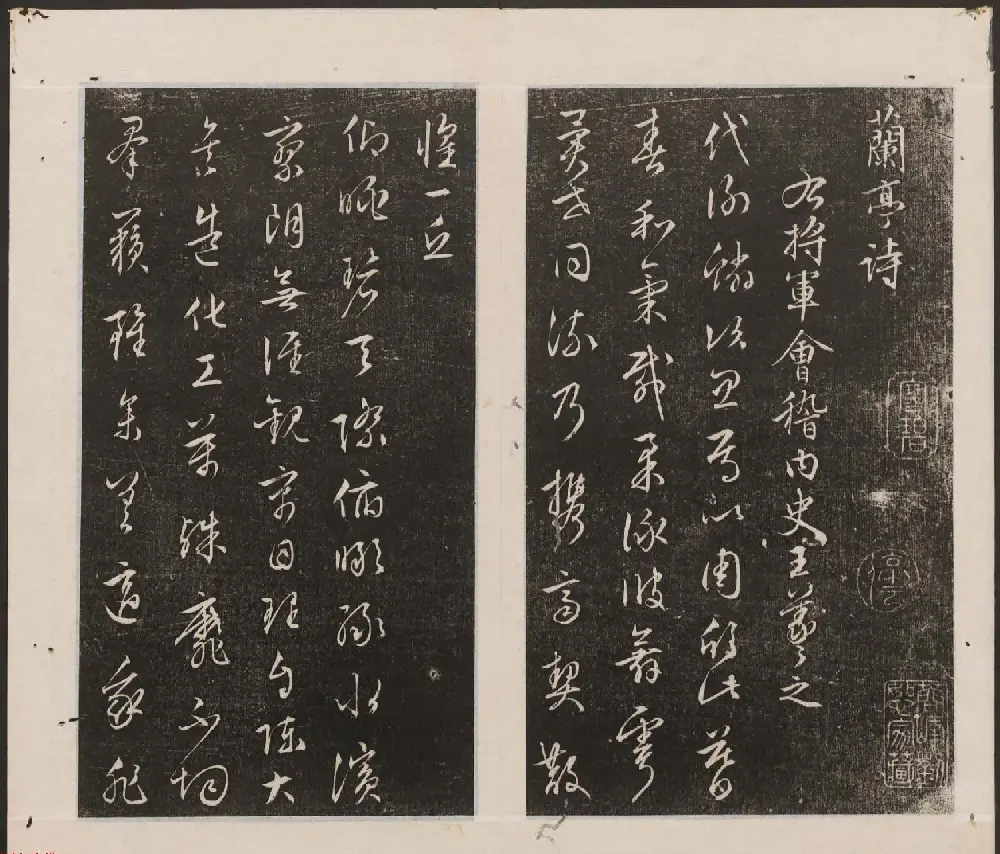 蘭亭詩
右將軍會稽內史王羲之
代謝鱗次忽焉以周欣此暮
春和氣載柔詠彼舞雩
異世同流乃攜齊契散
懷一丘
仰眺碧天際俯瞰綠水濱
寥朗無涯觀寓目理自陳大
矣造化工萬殊靡不均
羣籟雖參差適我非